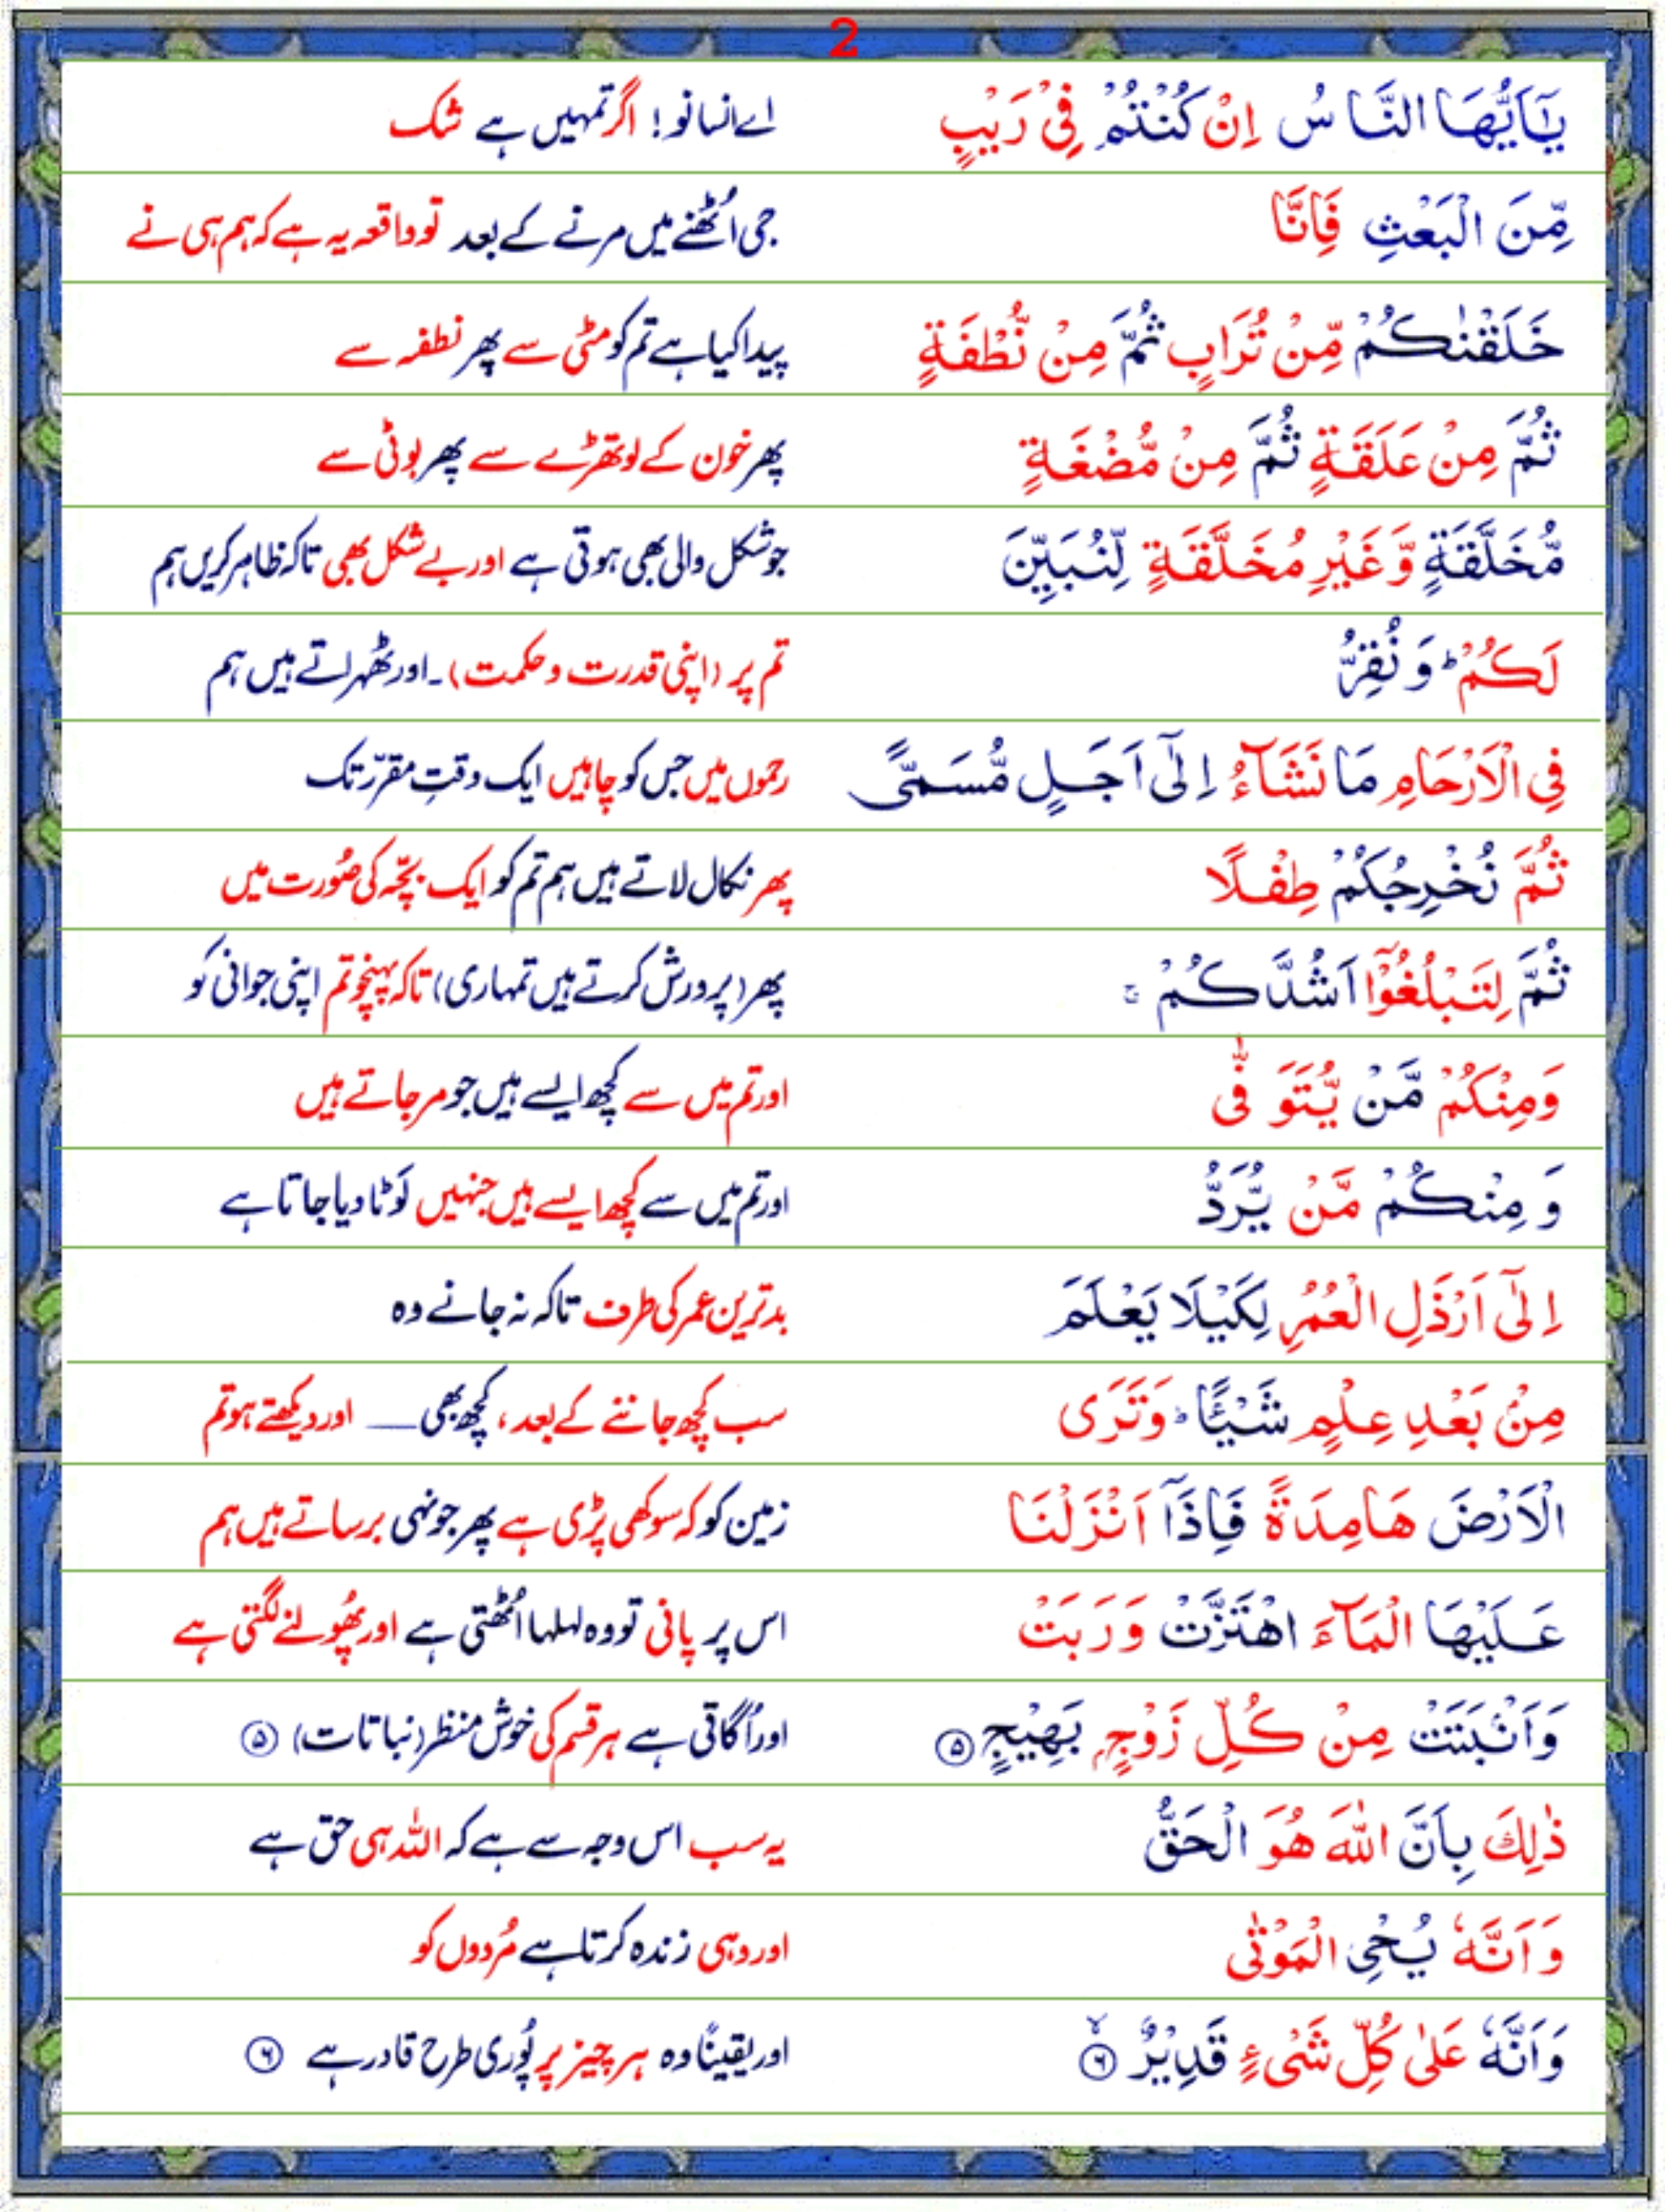 2
يٰۤاَيُّهَا النَّاسُ اِنْ كُنْتُمْ فِىْ رَيْبٍ اے انسانو! اگر تمہیں ہے شک
مِّنَ الْبَعْثِ فَاِنَّا جی اُٹھنے میں مرنے کے بعد تو واقعہ یہ ہے کہ ہم ہی نے
خَلَقْنٰكُمْ مِّنْ تُرَابٍ ثُمَّ مِنْ نُّطْفَةٍ پیدا کیا ہے تم کو مٹی سے پھر نطفہ سے
ثُمَّ مِنْ عَلَقَةٍ ثُمَّ مِنْ مُّضْغَةٍ پھر خون کے لوتھڑے سے پھر بوٹی سے
مُّخَلَّقَةٍ وَّغَيْرِ مُخَلَّقَةٍ لِّنُبَيِّنَ جو شکل والی بھی ہوتی ہے اور بے شکل بھی تاکہ ظاہر کریں ہم
لَكُمْ ؕ وَ نُقِرُّ تم پر (اپنی قدرت و حکمت)۔ اور ٹھہراتے ہیں ہم
فِى الْاَرْحَامِ مَا نَشَآءُ اِلٰٓى اَجَلٍ مُّسَمًّى رحموں میں جس کو چاہیں ایک وقتِ مقرّر تک
ثُمَّ نُخْرِجُكُمْ طِفْلًا پھر نکال لاتے ہیں ہم تم کو ایک بچّہ کی صُورت میں
ثُمَّ لِتَبْلُغُوْۤا اَشُدَّكُمْ ۚ پھر (پرورش کرتے ہیں تمہاری) تاکہ پہنچو تم اپنی جوانی کو
وَمِنْكُمْ مَّنْ يُّتَوَ فّٰى اور تم میں سے کچھ ایسے ہیں جو مر جاتے ہیں
وَ مِنْكُمْ مَّنْ يُّرَدُّ اور تم میں سے کچھ ایسے ہیں جنہیں لَوٹا دیا جاتا ہے
اِلٰٓى اَرْذَلِ الْعُمُرِ لِكَيْلَا يَعْلَمَ بدترین عمر کی طرف تاکہ نہ جانے وہ
مِنْۢ بَعْدِ عِلْمٍ شَيْـًٔا ؕ وَتَرَى سب کچھ جاننے کے بعد، کچھ بھی ــــ اور دیکھتے ہو تم
الْاَرْضَ هَامِدَةً فَاِذَاۤ اَنْزَلْنَا زمین کو کہ سوکھی پڑی ہے پھر جونہی برساتے ہیں ہم
عَلَيْهَا الْمَآءَ اهْتَزَّتْ وَرَبَتْ اس پر پانی تو وہ لہلہا اُٹھتی ہے اور پھُولنے لگتی ہے
وَاَنْۢبَتَتْ مِنْ كُلِّ زَوْجٍۭ بَهِيْجٍ ۵ اور اُگاتی ہے ہر قسم کی خوش منظر (نباتات) ۵
ذٰلِكَ بِاَنَّ اللّٰهَ هُوَ الْحَقُّ یہ سب اس وجہ سے ہے کہ اللہ ہی حق ہے
وَ اَنَّهٗ يُحْىِ الْمَوْتٰى اور وہی زندہ کرتا ہے مُردوں کو
وَاَنَّهٗ عَلٰى كُلِّ شَىْءٍ قَدِيْرٌ ۶ اور یقینًا وہ ہر چیز پر پُوری طرح قادر ہے ۶